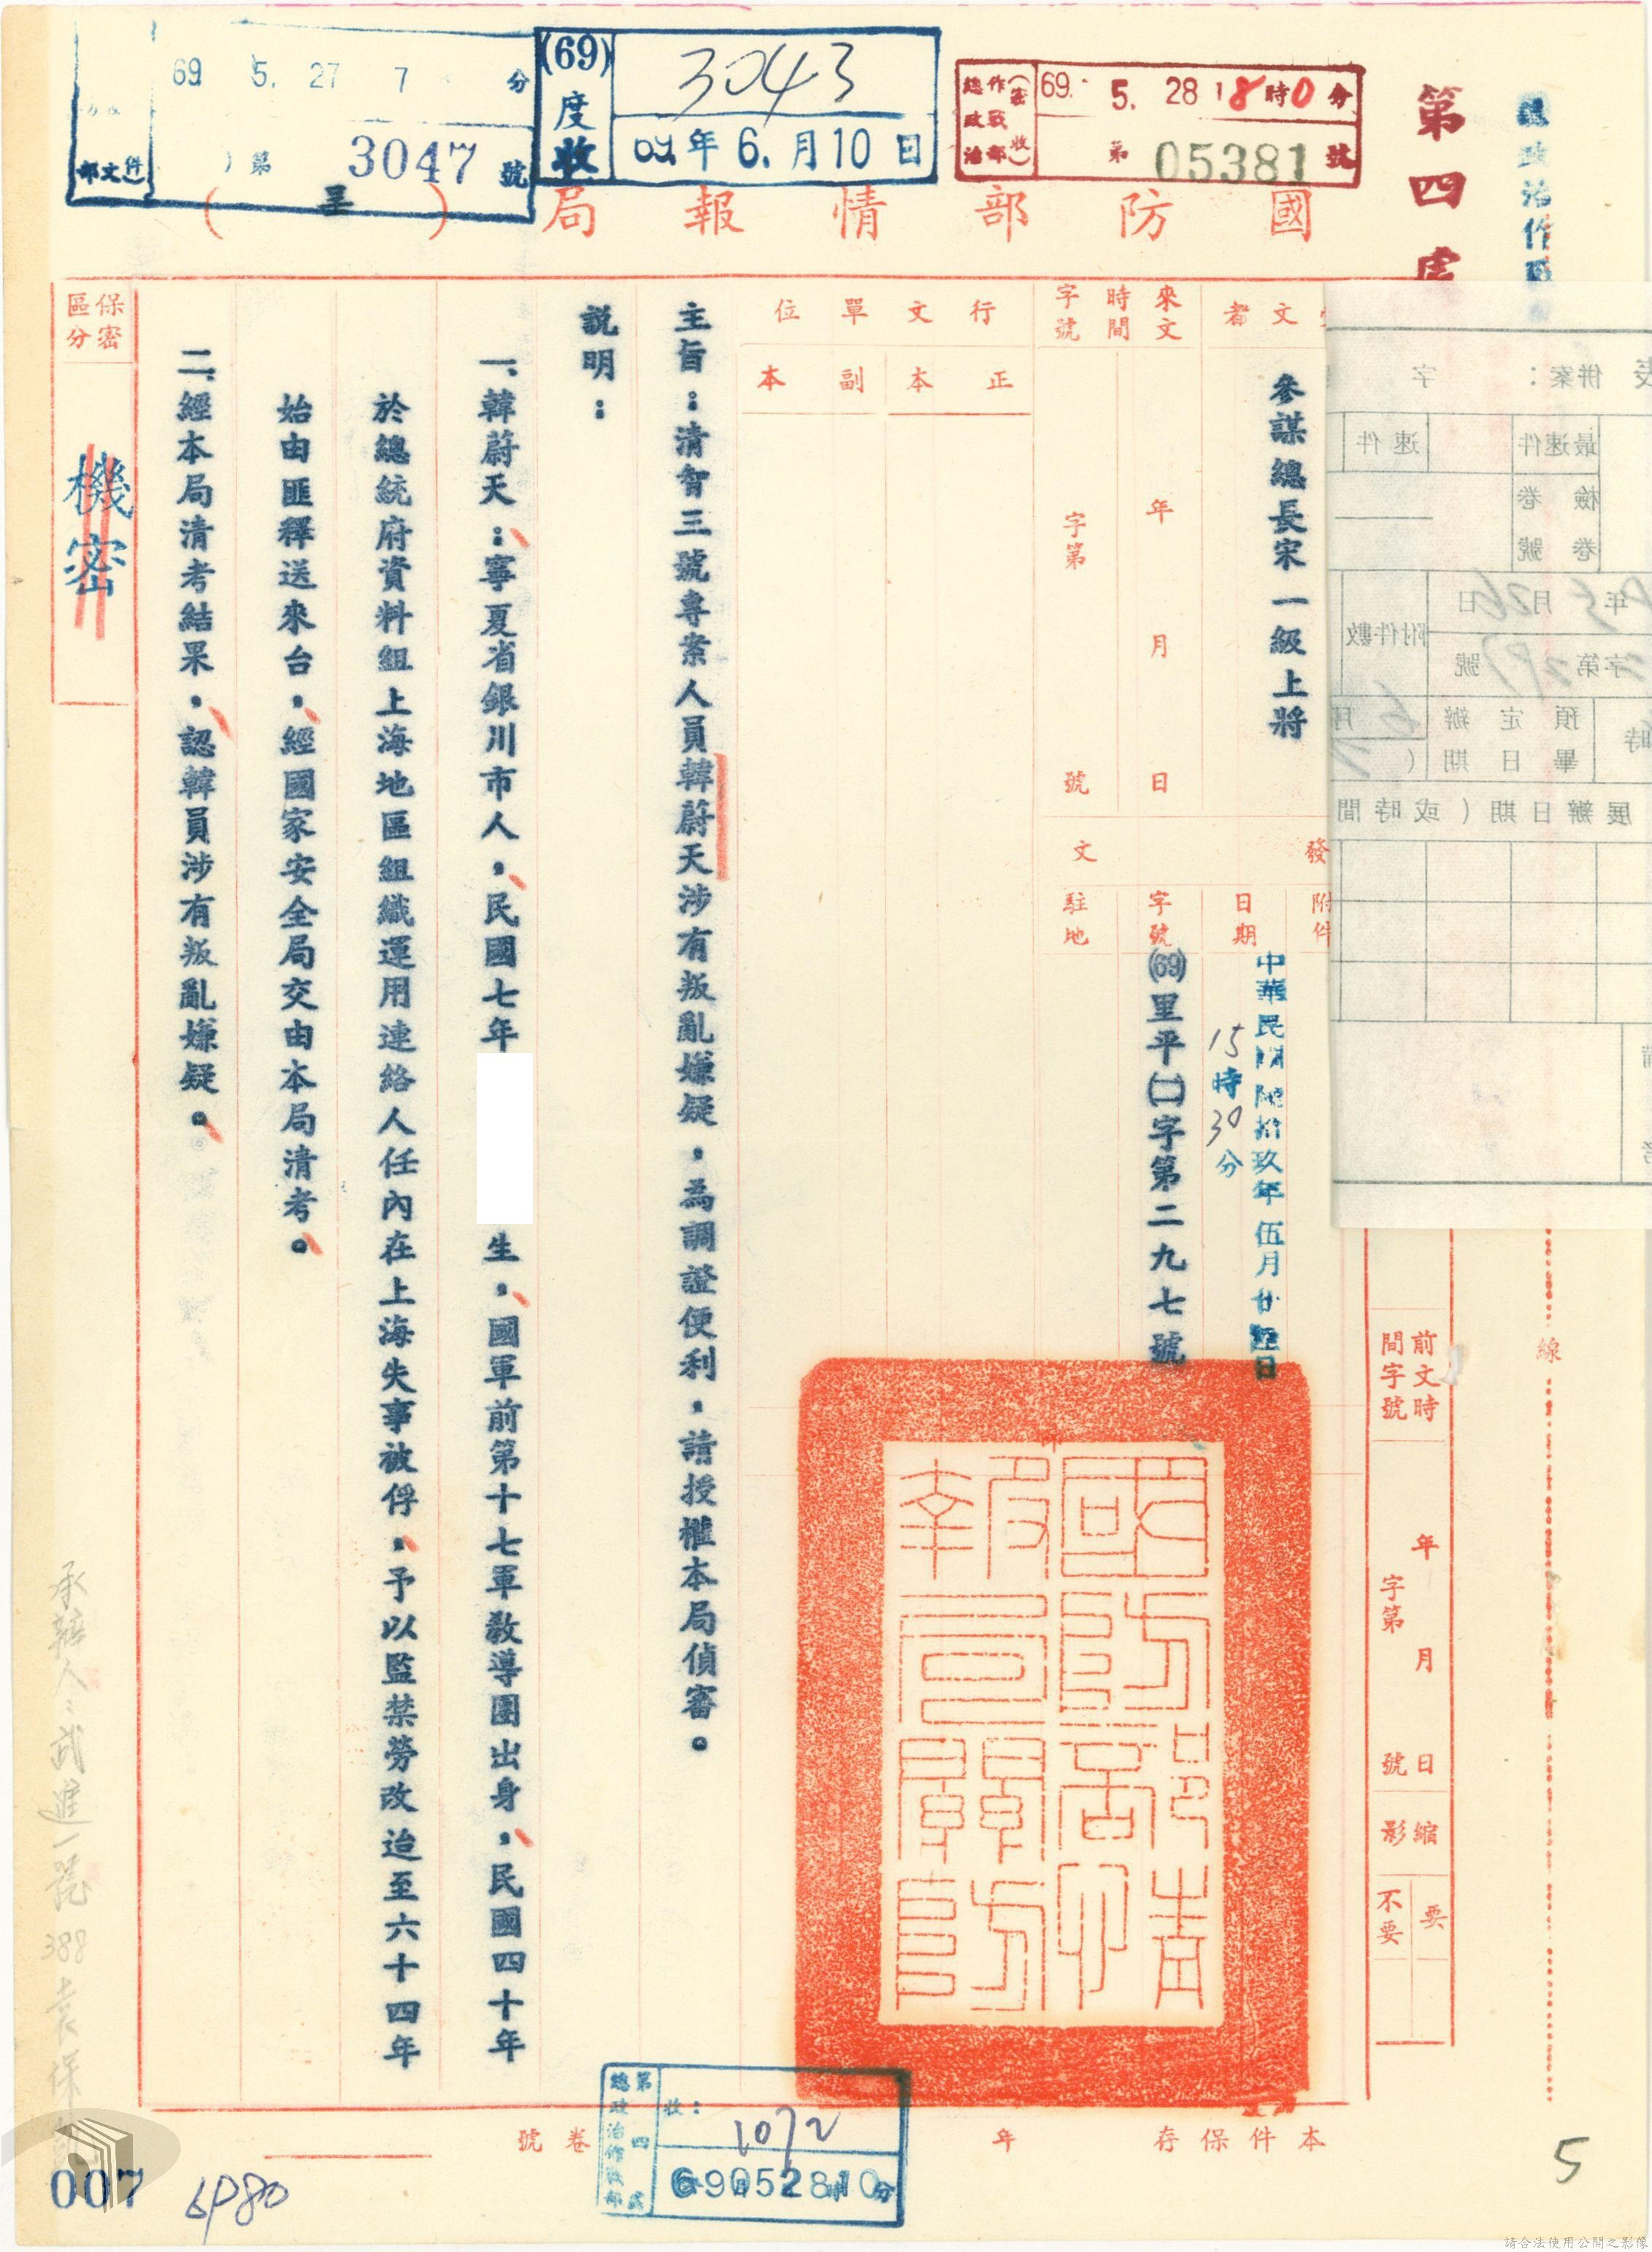 總政治作
第四處
(69)度收
3043
69年6.月10日
69. 5. 27 7 分
第3047號
文件
總政治作戰部
收
69. 5. 28 18時0分
第05381號
國防部情報局(呈)
保密區分
機密
文者
參謀總長宋一級上將
來文時間字號
年月日
字第號
行文單位
正本
副本
發文
附件
日期
中華民國陸拾玖年伍月廿
15時30分
字號
(69)里平(二)字第二九七號
駐地
主旨：清智三號專案人員韓蔚天涉有叛亂嫌疑，為調證便利，請授權本局偵審。
說明：
一、韓蔚天：寧夏省銀川市人，民國七年
生，國軍前第十七軍教導團出身，民國四十年
於總統府資料組上海地區組織運用連絡人任內在上海失事被俘，予以監禁勞改迨至六十四年
始由匪釋送來台，經國家安全局交由本局清考。
二、經本局清考結果，認韓員涉有叛亂嫌疑。
國防部情報局關防
前文時間字號
年月日
字第號
縮影
要
不要
線
併案：字
最速件
速件
檢卷
卷號
年5月26日
字第297號
附件數
預定辦畢日期
展辦日期(或時間
本件保存年
卷號
總政治作戰部第四處
收：
1072
6905281 0分
承辦人：武進一號 388袁保
007
6P80
5
請合法使用公開之影像